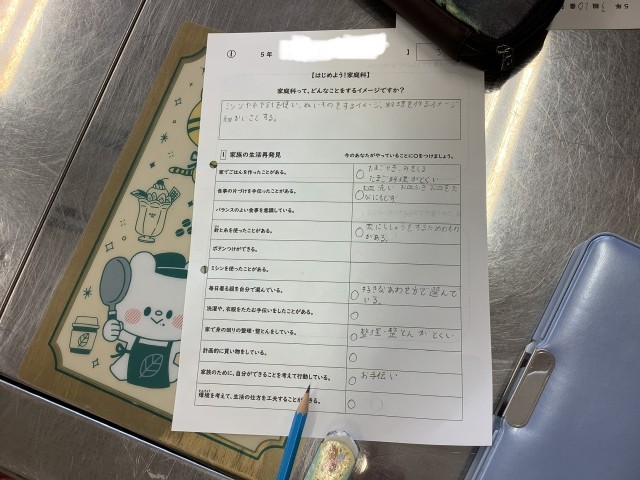 ①
5年
【はじめよう!家庭科】
家庭科って、どんなことをするイメージですか?
ミシンや糸や針を使い、ぬいものをするイメージ、料理を作るイメージ
細かいことする。
1 家族の生活再発見 今のあなたがやっていることに〇をつけましょう。
家でごはんを作ったことがある。 〇 たまごやき、みそしる
たまご料理がとくい
食事の片づけを手伝ったことがある。 〇 皿洗い
バランスのよい食事を意識している。
針と糸を使ったことがある。 〇
がある。
ボタンつけができる。
ミシンを使ったことがある。
毎日着る服を自分で選んでいる。 〇 好きなあわせ方で選んで
いる。
洗濯や、衣服をたたお手伝いをしたことがある。 〇
家で身の回りの整理・整とんをしている。 〇 整理・整とんがとくい
計画的に買い物をしている。 〇
家族のために、自分ができることを考えて行動している。 〇 お手伝い
環境を考えて、生活の仕方を工夫することができる。 〇